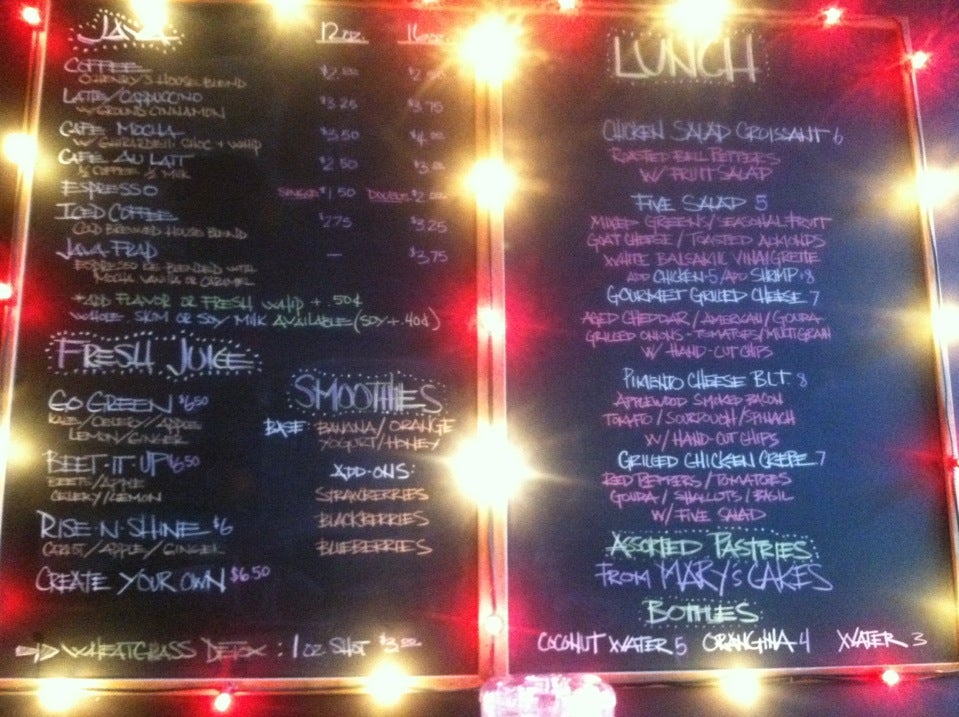 JAVA 12 OZ. 16 OZ.
COFFEE
O.HENRY'S HOUSE BLEND
LATE/CAPPUCCINO $3.25 $3.75
W/GROUND CINNAMON
CAFE MOCHA $3.50
W/ GHIRARDELLI CHOC + WHIP
CAFE AU LAIT $2.50
½ COFFEE ½ MILK
ESPRESSO SINGLE $1.50 DOUBLE
ICED COFFEE $2.75 $3.25
COLD BREWED HOUSE BLEND
JAVA FRAP — $3.75
ESPRESSO BLENDED WITH
MOCHA VANILLA OR CARAMEL
*ADD FLAVOR OR FRESH WHIP + .50¢
WHOLE SKIM OR SOY MILK AVAILABLE (SOY + .40¢)
FRESH JUICE
GO GREEN $6.50
KALE/CELERY/APPLE
LEMON/GINGER
BEET-IT-UP $6.50
BEETS/APPLE
CELERY/LEMON
RISE-N-SHINE $6
CARROT/APPLE/GINGER
CREATE YOUR OWN $6.50
SMOOTHIES
BASE: BANANA/ORANGE
YOGURT/HONEY
ADD-ONS:
STRAWBERRIES
BLACKBERRIES
BLUEBERRIES
WHEATGRASS DETOX: 1 OZ SHOT $3.00
LUNCH
CHICKEN SALAD CROISSANT 6
ROASTED BELL PEPPERS
W/ FRUIT SALAD
FIVE SALAD 5
MIXED GREENS/SEASONAL FRUIT
GOAT CHEESE/TOASTED ALMONDS
WHITE BALSAMIC VINAIGRETTE
ADD CHICKEN-5/ADD SHRIMP+8
GOURMET GRILLED CHEESE 7
AGED CHEDDAR/AMERICAN/GOUDA
GRILLED ONIONS-TOMATOES/MULTIGRAIN
W/ HAND-CUT CHIPS
PIMENTO CHEESE BLT. 8
APPLEWOOD SMOKED BACON
TOMATO/SOURDOUGH/SPINACH
W/ HAND-CUT CHIPS
GRILLED CHICKEN CREPE 7
RED PEPPERS/TOMATOES
GOUDA/SHALLOTS/BASIL
W/FIVE SALAD
ASSORTED PASTRIES
FROM MARY'S CAKES
BOTTLES
COCONUT WATER 5 ORANGINA 4 WATER 3